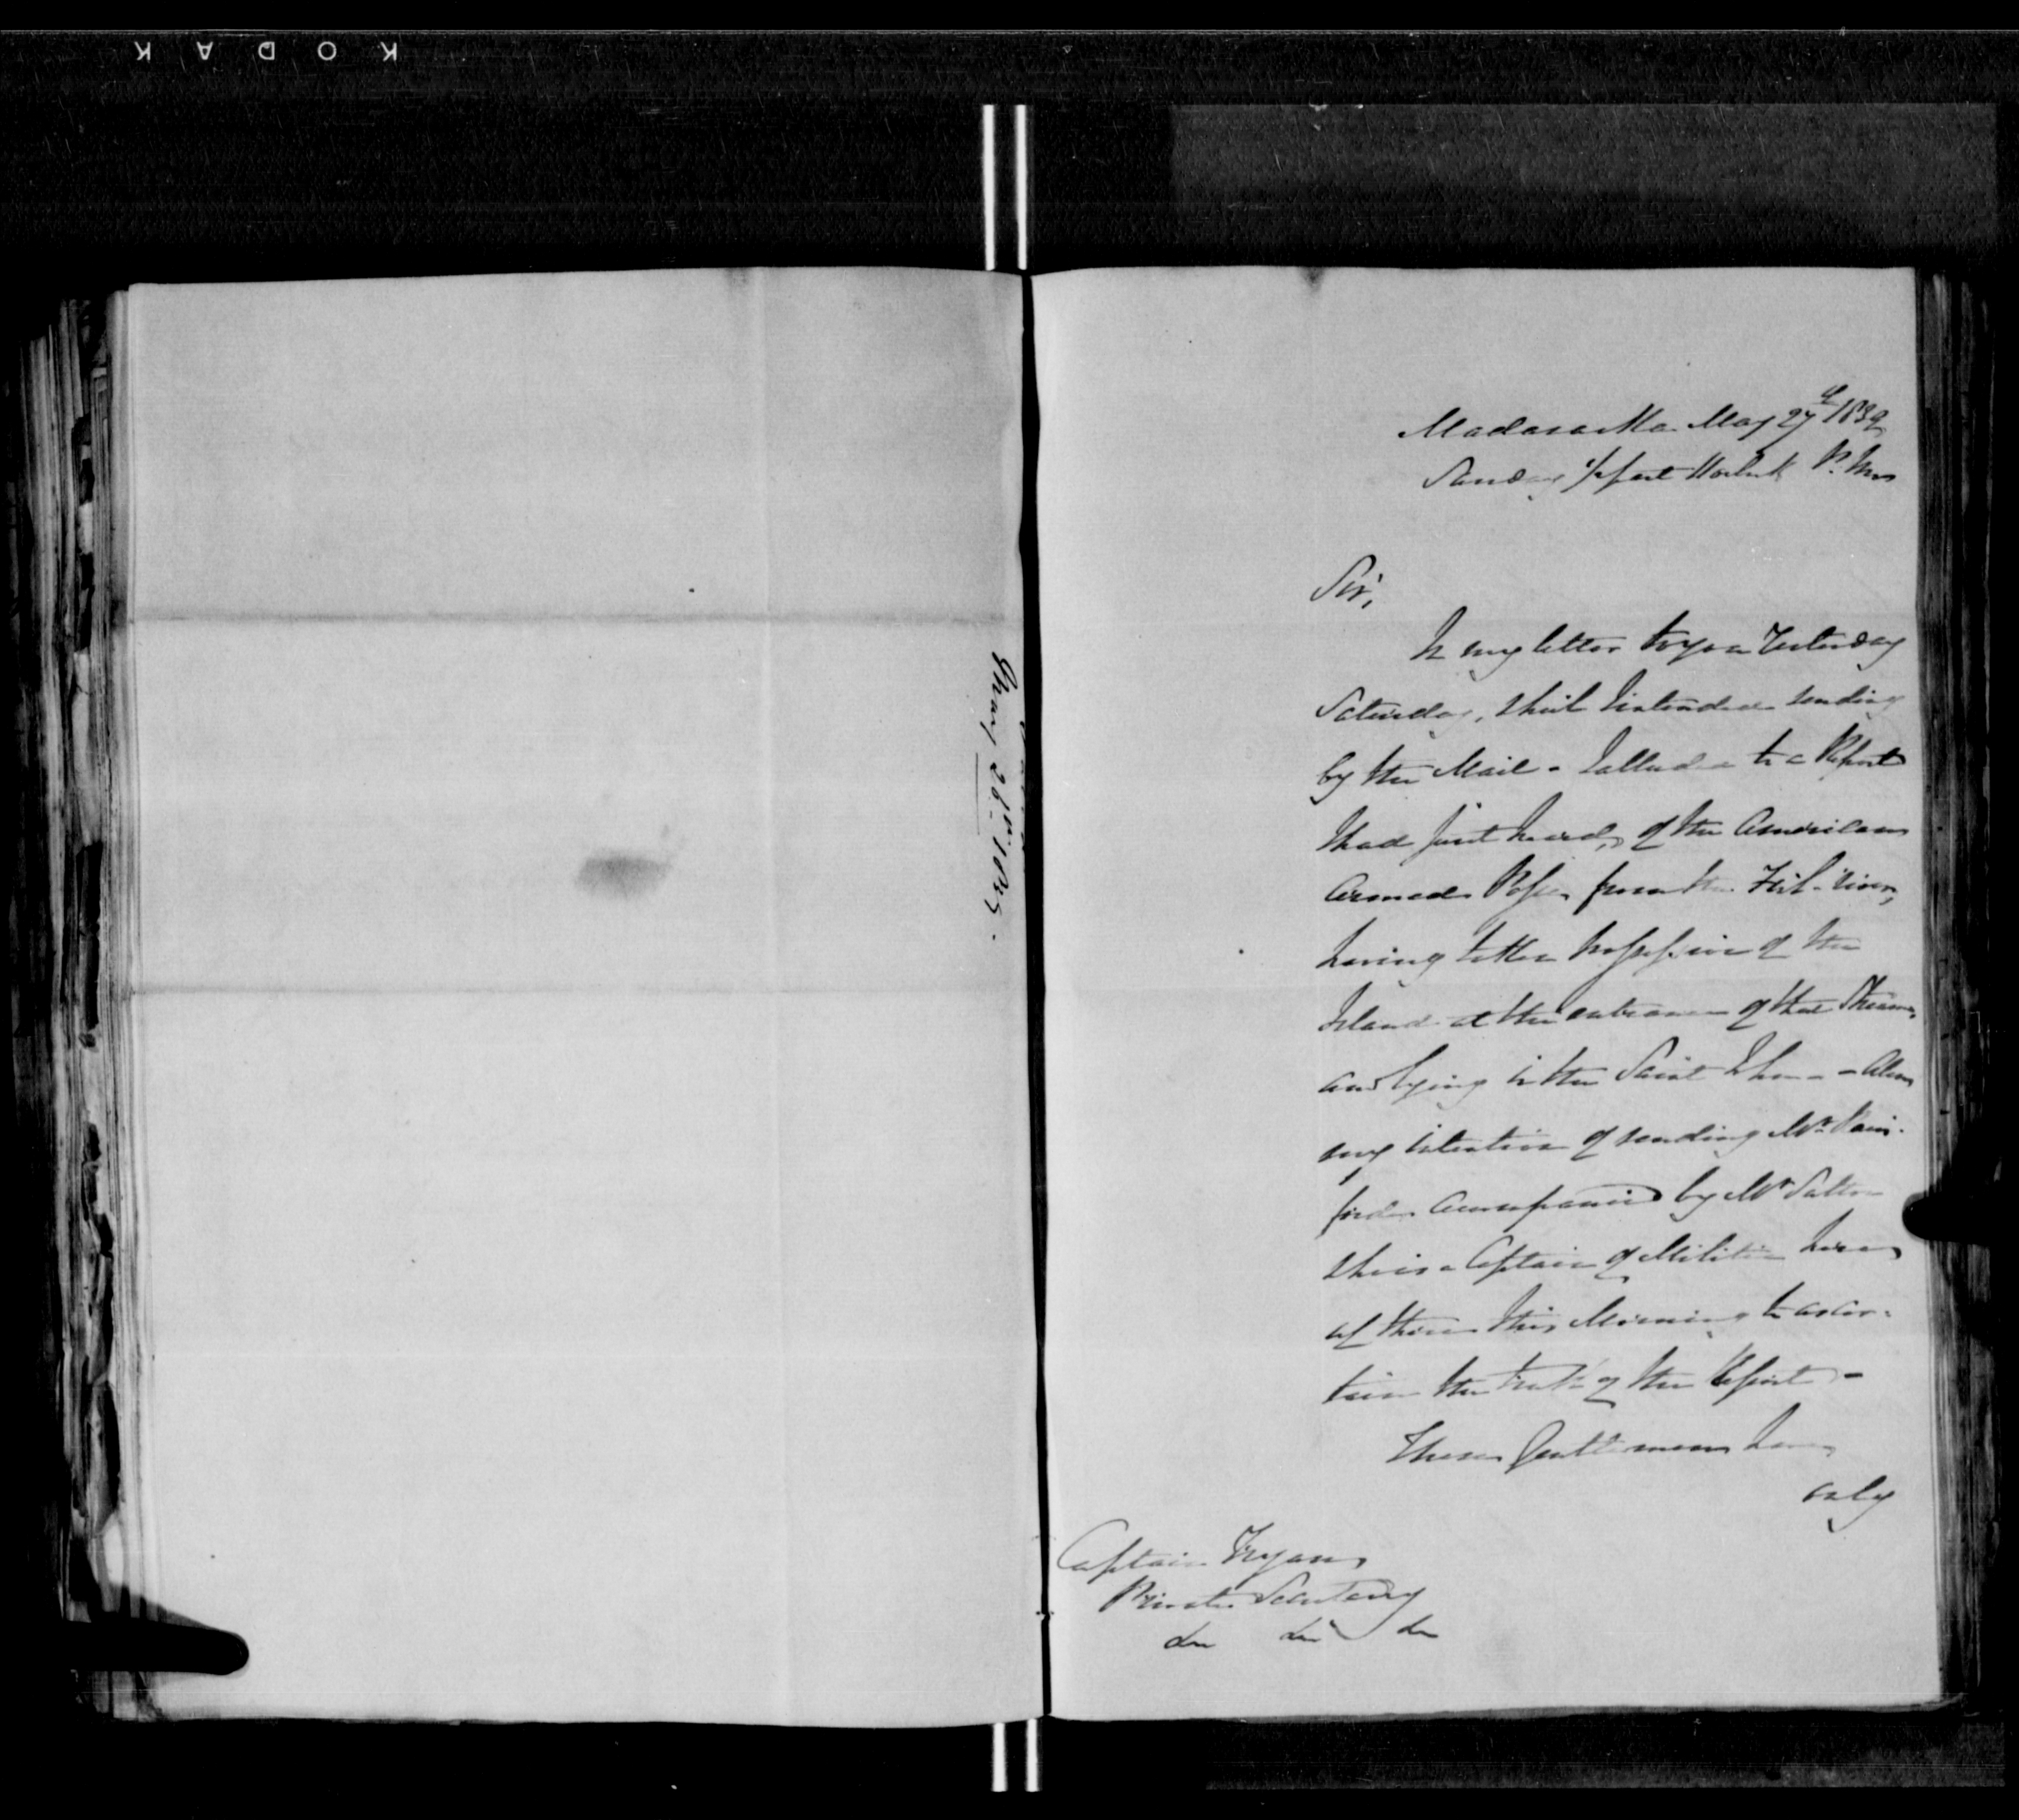 KODAK
May 28th 1839.
Madawaska May 27th 1839
Sunday 1/2 past o'clock P. M.
Sir,
In my letter to you Yesterday
Saturday, which I intended sending
by the Mail - I alluded to a Report
I had just heard, of the Americans
Armed Posse, from the Fish-river,
having taken possession of the
Island at the entrance of that Stream,
and lying in the Saint John - also
my intention of sending Mr. Rain-
ford accompanied by Mr.
who is a Captain of Militia here
up there this Morning to ascer-
tain the truth of the Report -
These Gentlemen have
only
Captain Tryon,
Private Secretary
&c &c &c